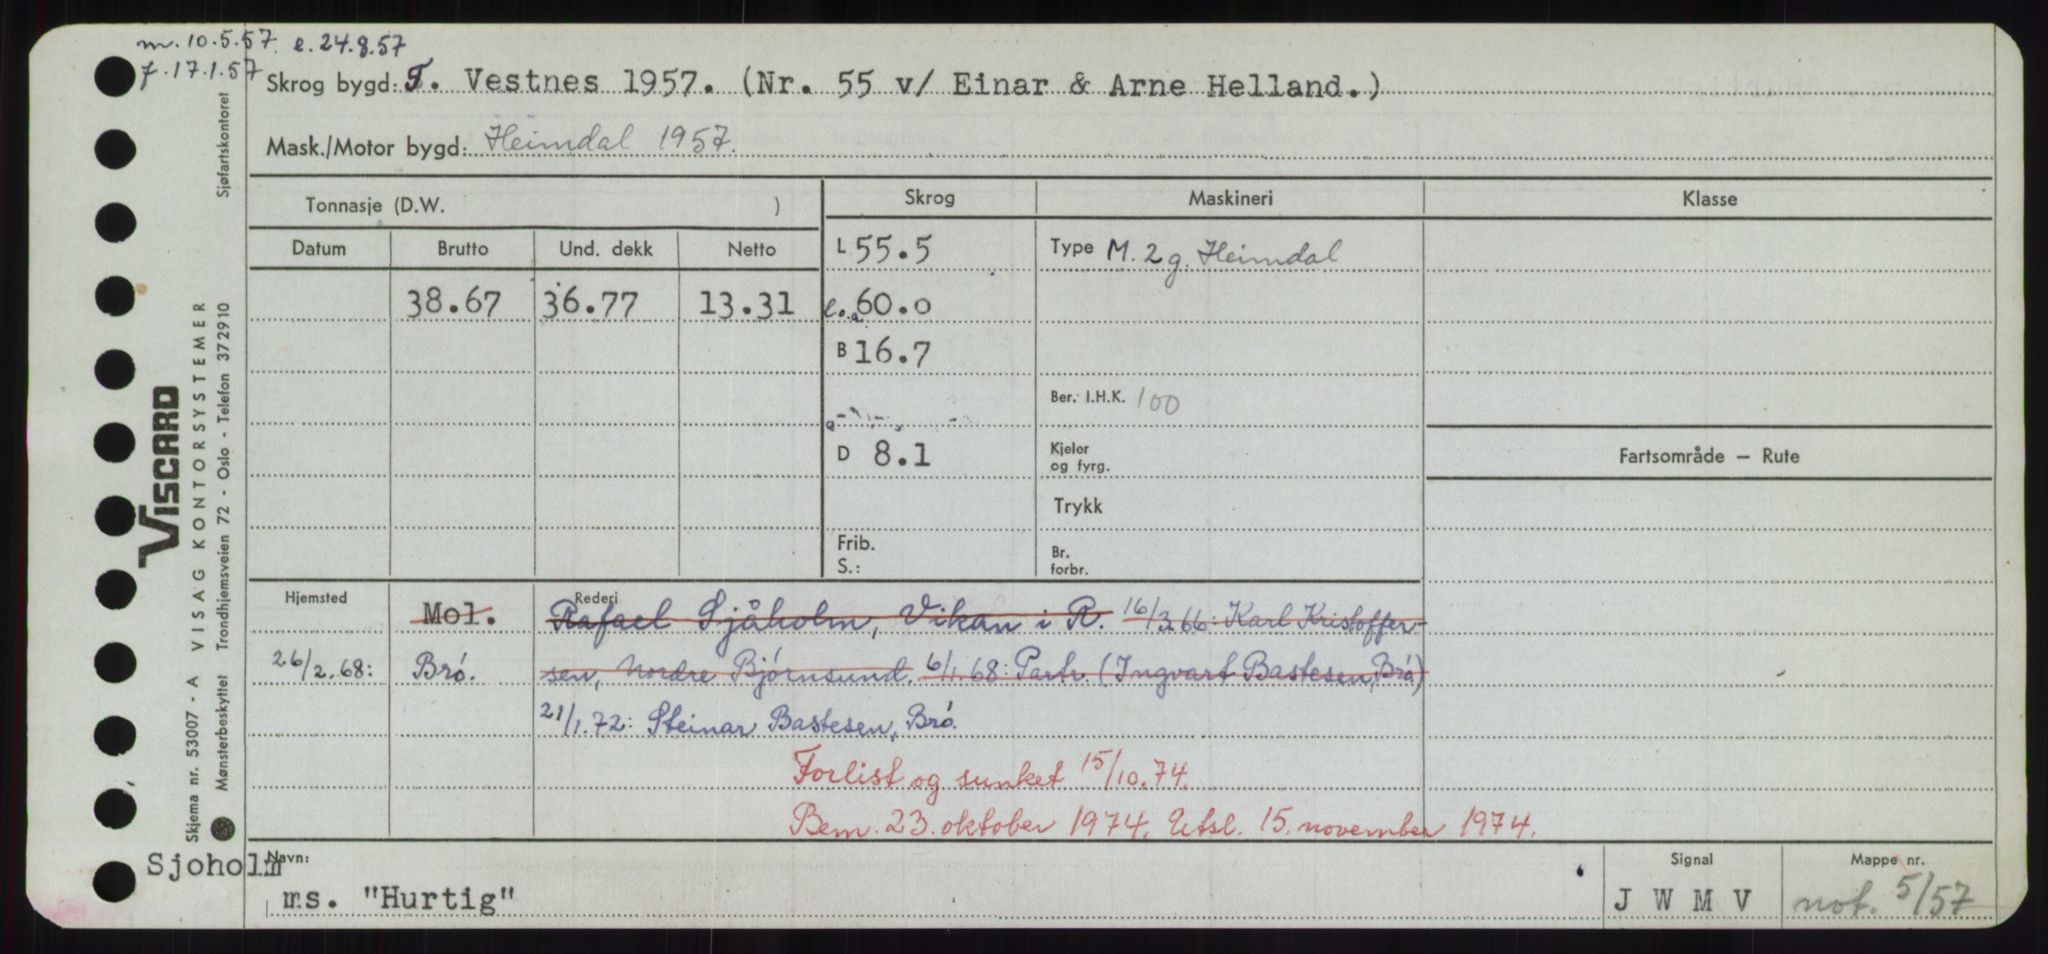 m. 10.5.57. e. 24.8.57
f. 17.1.57
Skrog bygd: T. Vestnes 1957. (Nr. 55 v/ Einar & Arne Helland.)
Mask./Motor bygd: Heimdal 1957.
Tonnasje (D.W. )
Skrog Maskineri Klasse
Datum Brutto Und. dekk Netto
L 55.5 Type M. 2 g. Heimdal
38.67 36.77 13.31 l.o.a 60.0
B 16.7
Ber. I.H.K. 100
D 8.1 Kjeler
og fyrg.
Fartsområde – Rute
Trykk
Frib.
S.:
Br.
forbr.
Hjemsted Rederi
Mol. Rafael Sjåholm, Vikan i R. 16/3.66: Karl Kristoffer-
26/2.68: Bró. sen, Nordre Bjórnsund. 6/1.68: Partr. (Ingvart Bastesen, Bró)
21/1.72: Steinar Bastesen, Bró.
Forlist og sunket 15/10.74.
Bem. 23. oktober 1974. Utsl. 15. november 1974.
Sjoholm
Navn: Signal Mappe nr.
ms. "Hurtig" J W M V not. 5/57
VISCARD
Skjema nr. 53007 - A VISAG KONTORSYSTEMER
Mønsterbeskyttet Trondhjemsveien 72 - Oslo - Telefon 372910 Sjøfartskontoret